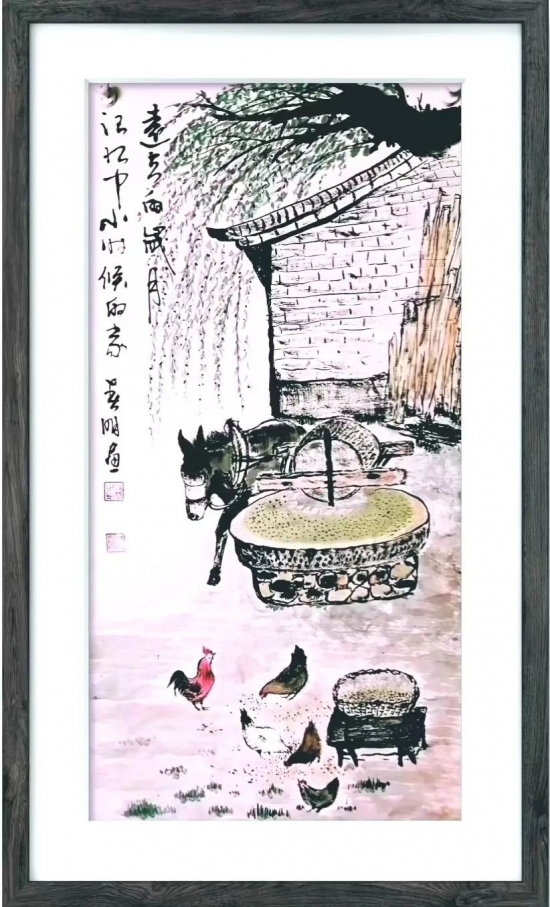 遠去的歲月
记忆中小时候的家 春明画